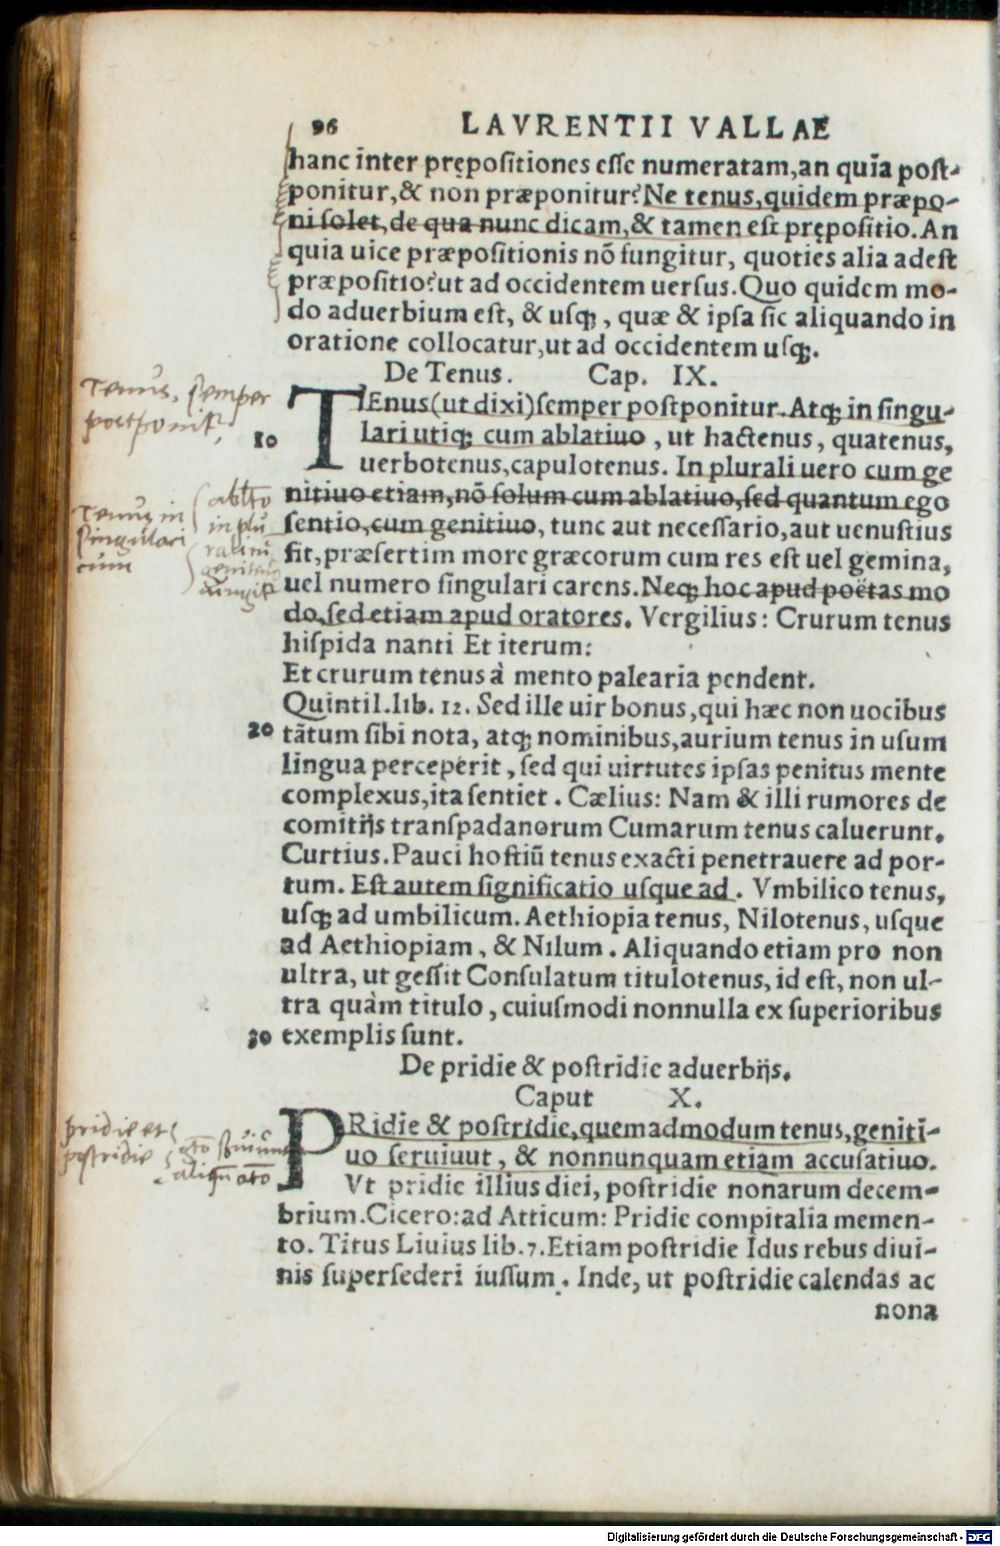 96 LAVRENTII VALLAE
hanc inter prępositiones esse numeratam,an quia post-
ponitur,& non præponitur? Ne tenus,quidem præpo-
ni solet,de qua nunc dicam,& tamen est prępositio. An
quia uice præpositionis nō fungitur, quoties alia adest
præpositio? ut ad occidentem uersus. Quo quidem mo-
do aduerbium est, & usq;, quæ & ipsa sic aliquando in
oratione collocatur,ut ad occidentem usq;.
De Tenus. Cap. IX.
Tenus, semper
postponitr
TEnus(ut dixi)semper postponitur. Atq; in singu-
10 lari utiq; cum ablatiuo, ut hactenus, quatenus,
uerbotenus,capulotenus. In plurali uero cum ge
nitiuo etiam,nō solum cum ablatiuo,sed quantum ego
sentio,cum genitiuo, tunc aut necessario,aut uenustius
fit,præsertim more græcorum cum res est uel gemina,
uel numero singulari carens. Neq; hoc apud poëtas mo
do,sed etiam apud oratores. Vergilius: Crurum tenus
Tenus in
singulari
cum
ablto
in plu
rali
hispida nanti Et iterum:
Et crurum tenus à mento palearia pendent.
Quintil.lib. 12. Sed ille uir bonus,qui hæc non uocibus
20 tātum sibi nota, atq; nominibus,aurium tenus in usum
lingua perceperit, sed qui uirtutes ipsas penitus mente
complexus,ita sentiet. Cælius: Nam & illi rumores de
comitijs transpadanorum Cumarum tenus caluerunt.
Curtius. Pauci hostiū tenus exacti penetrauere ad por-
tum. Est autem significatio usque ad. Vmbilico tenus,
usq; ad umbilicum. Aethiopia tenus, Nilotenus, usque
ad Aethiopiam, & Nilum. Aliquando etiam pro non
ultra, ut gessit Consulatum titulotenus, id est, non ul-
tra quàm titulo, cuiusmodi nonnulla ex superioribus
30 exemplis sunt.
De pridie & postridie aduerbijs.
Caput X.
pridie et
postridie
PRidie & postridie,quemadmodum tenus,geniti-
uo seruiuut, & nonnunquam etiam accusatiuo.
Vt pridie illius diei, postridie nonarum decem-
brium. Cicero: ad Atticum: Pridie compitalia memen-
to. Titus Liuius lib. 7. Etiam postridie Idus rebus diui-
nis supersederi iussum. Inde, ut postridie calendas ac
nona
Digitalisierung gefördert durch die Deutsche Forschungsgemeinschaft - DFG